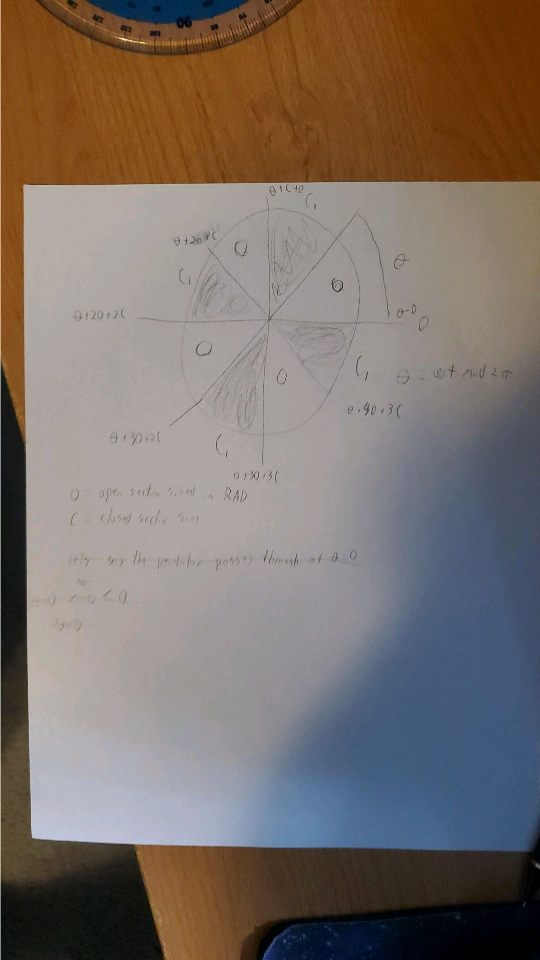 90
θ+C+O
C₁
O
C₁
θ
O
θ-O
O
θ+2O+2C
O
O
C₁
θ = ωt mod 2π
θ+4O+3C
θ+3O+2C
C₁
θ+3O+3C
O = open sector sized in RAD
C = closed sector size
lets say the particle passes through at θ=0